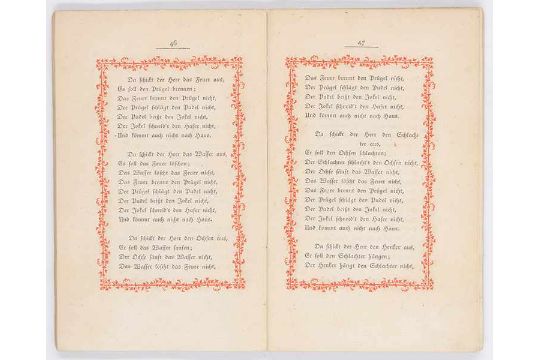 46
Da schickt der Herr das Feuer aus,
Es soll den Prügel brennen;
Das Feuer brennt den Prügel nicht,
Der Prügel schlägt den Pudel nicht,
Der Pudel beißt den Jokel nicht,
Der Jokel schneid't den Hafer nicht,
Und kommt auch nicht nach Haus.
Da schickt der Herr das Wasser aus,
Es soll das Feuer löschen;
Das Wasser löscht das Feuer nicht,
Das Feuer brennt den Prügel nicht,
Der Prügel schlägt den Pudel nicht,
Der Pudel beißt den Jokel nicht,
Der Jokel schneid't den Hafer nicht,
Und kommt auch nicht nach Haus.
Da schickt der Herr den Ochsen aus,
Er soll das Wasser saufen;
Der Ochse säuft das Wasser nicht,
Das Wasser löscht das Feuer nicht,
47
Das Feuer brennt den Prügel nicht,
Der Prügel schlägt den Pudel nicht,
Der Pudel beißt den Jokel nicht,
Der Jokel schneid't den Hafer nicht,
Und kommt auch nicht nach Haus.
Da schickt der Herr den Schlach-
ter aus,
Er soll den Ochsen schlachten;
Der Schlachter schlacht't den Ochsen nicht,
Der Ochse säuft das Wasser nicht,
Das Wasser löscht das Feuer nicht,
Das Feuer brennt den Prügel nicht,
Der Prügel schlägt den Pudel nicht,
Der Pudel beißt den Jokel nicht,
Der Jokel schneid't den Hafer nicht,
Und kommt auch nicht nach Haus.
Da schickt der Herr den Henker aus,
Er soll den Schlachter hängen;
Der Henker hängt den Schlachter nicht,